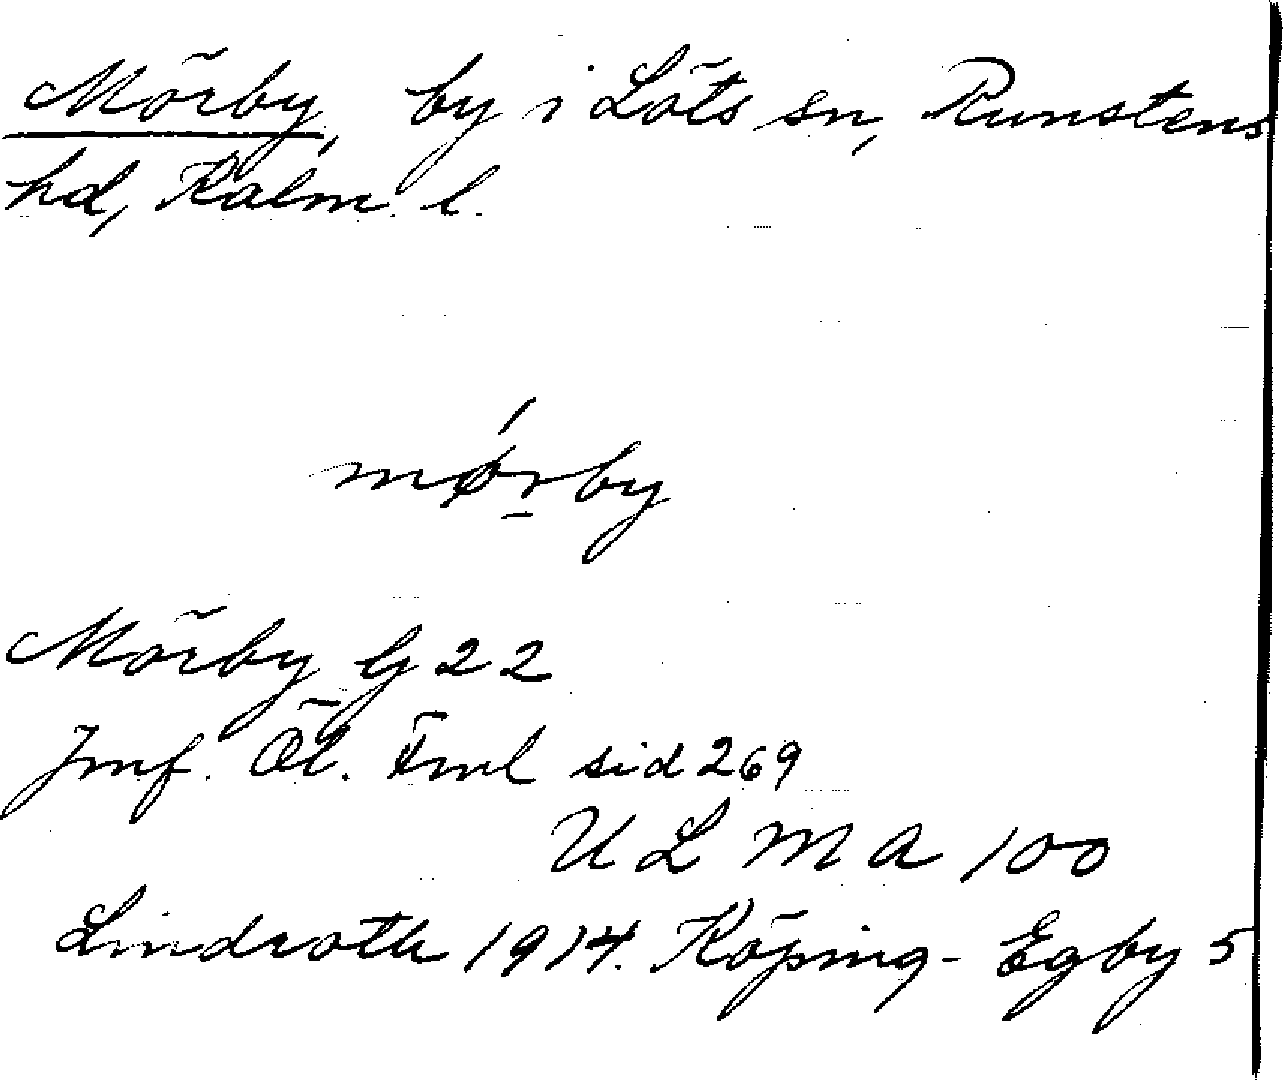 Mörby, by i Löts sn, Runstens
hd, Kalm. l.
mǿrby
Mörby G 22
Jmf. Öl. Fml sid 269
ULMA 100
Lindroth 1914. Köping-Egby 5